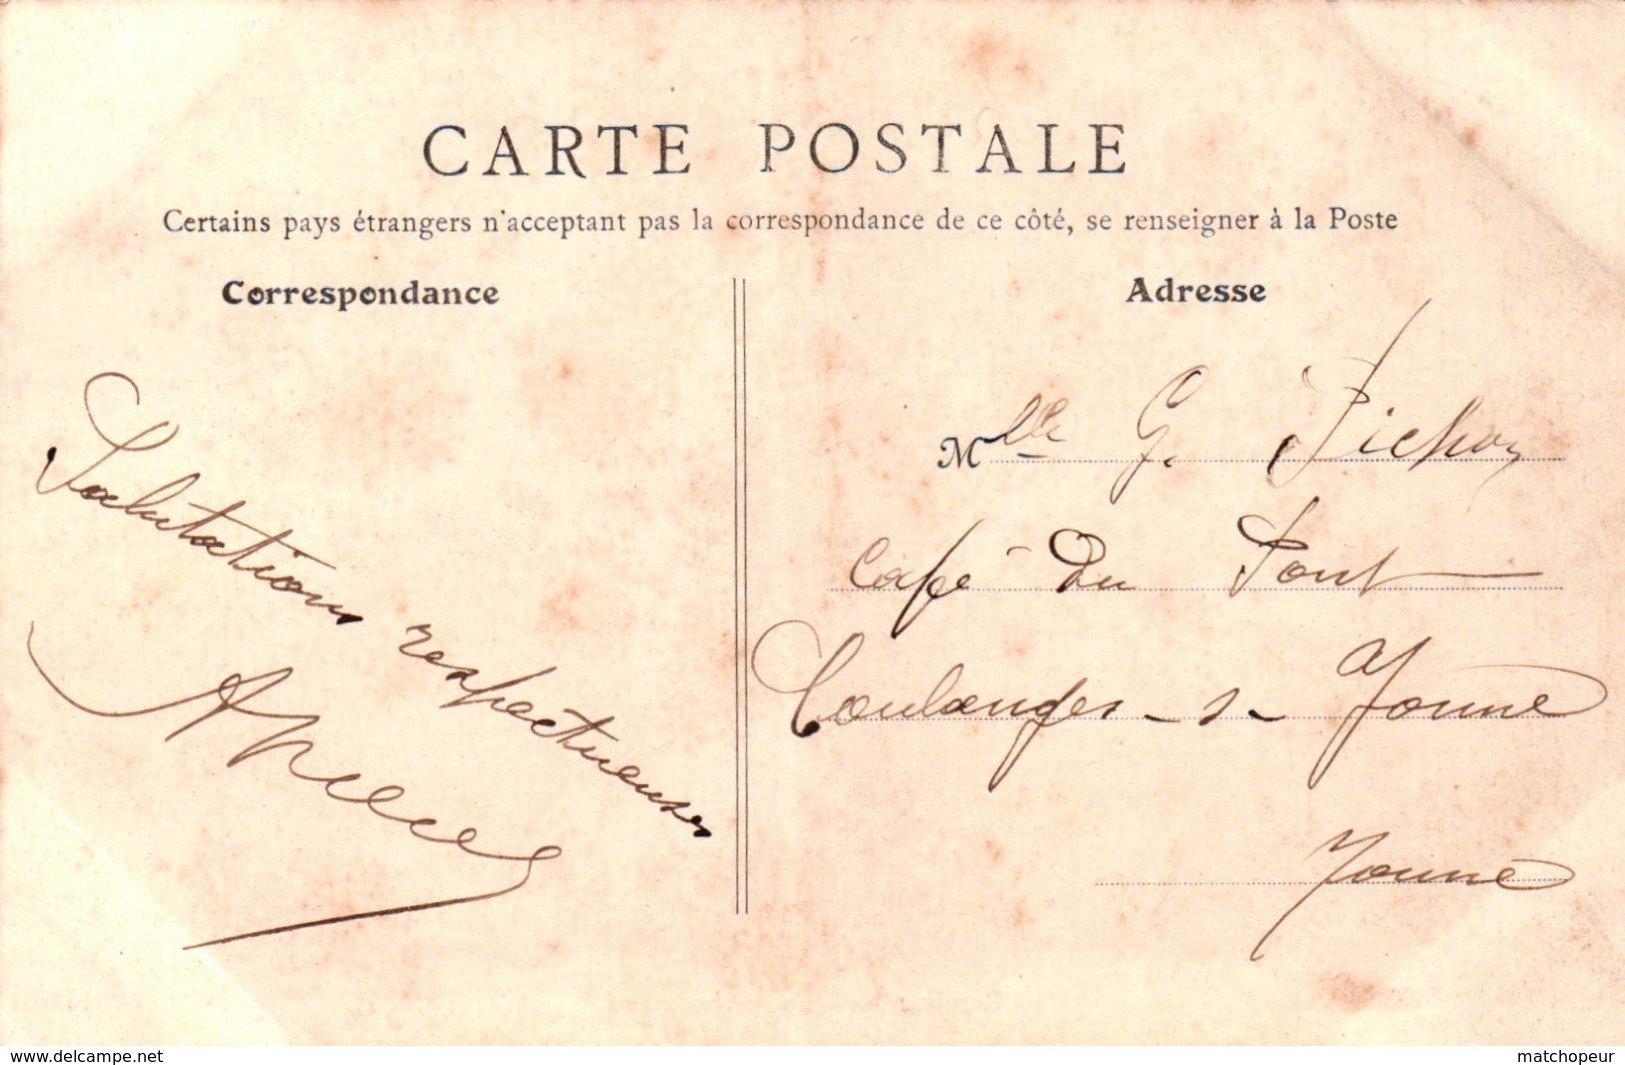 CARTE POSTALE
Certains pays étrangers n'acceptant pas la correspondance de ce côté, se renseigner à la Poste
Correspondance
Adresse
Salutations respectueuses
Mlle G. Pichon
Café Du Pont
Coulanges-s-Yonne
Yonne
www.delcampe.net
matchopeur